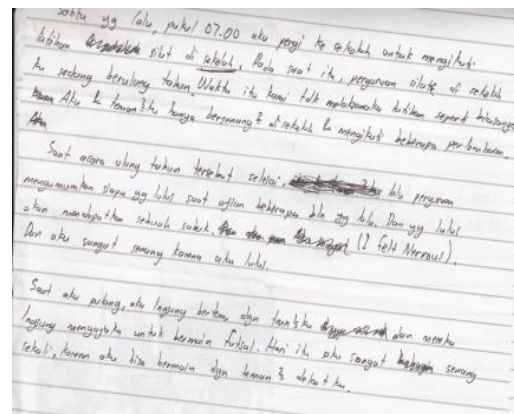 Sabtu yg lalu, pukul 07.00 aku pergi ke sekolah untuk mengikuti
latihan silat di sekolah. Pada saat itu, perguruan silat di sekolah
ku sedang berulang tahun. Waktu itu kami tdk melaksanakan latihan seperti biasanya.
Aku & teman2ku hanya bersenang2 di sekolah & mengikuti beberapa perlombaan.
Saat acara ulang tahun tersebut selesai, lalu perguruan
mengumumkan siapa yg lulus saat ujian beberapa bln yg lalu. Dan yg lulus
akan mendapatkan sebuah sabuk. (I felt Nervous).
Dan aku sangat senang karena aku lulus.
Saat aku pulang, aku lngsung bertemu dgn tman2ku dan mereka
lngsung mengajakku untuk bermain futsal. Hari itu aku sangat senang
sekali, karena aku bisa bermain dgn teman2 dekat ku.